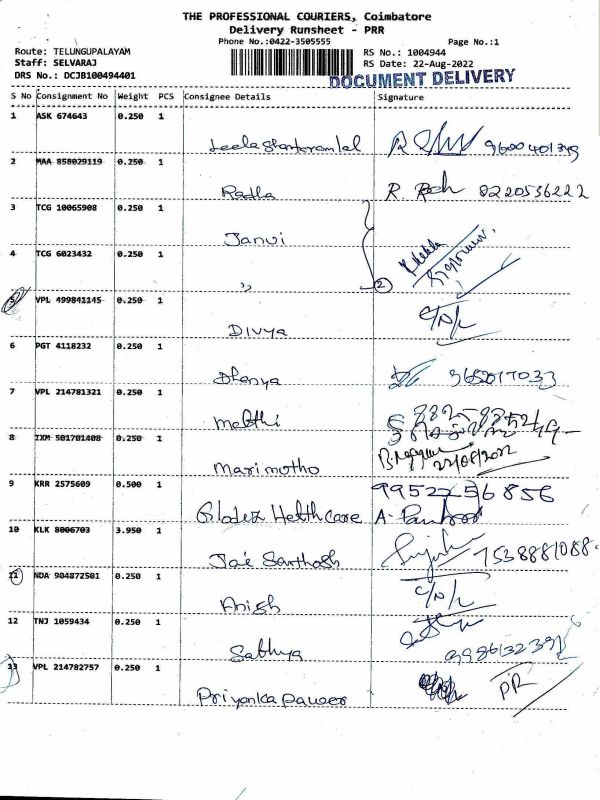 THE PROFESSIONAL COURIERS, Coimbatore
Delivery Runsheet - PRR
Phone No.:0422-3505555
Page No.:1
Route: TELUNGUPALAYAM
RS No.: 1004944
Staff: SELVARAJ
RS Date: 22-Aug-2022
DRS No.: DCJB100494401
DOCUMENT DELIVERY
S No Consignment No Weight PCS Consignee Details Signature
1 ASK 674643 0.250 1
Leela Shantoram lal 9600401349
2 MAA 858029119 0.250 1
Radha R. Rah 8220536222
3 TCG 10065908 0.250 1
Janvi
4 TCG 6023432 0.250 1
" 2
5 VPL 499841145 0.250 1
Divya C/N/L
6 PGT 4118232 0.250 1
Dhanya 9652017033
7 VPL 214781321 0.250 1
Malthi
8 IXM 501701408 0.250 1
Marimutho 22/08/2022
9 KRR 2575609 0.500 1
9952256856
Glodex Health care
10 KLK 8006703 3.950 1
Jai Santhosh 7538881088
11 NDA 904872501 0.250 1
Anish C/N/L
12 TNJ 1059434 0.250 1
Sabhya
13 VPL 214782757 0.250 1
Priyanka Paweer PR